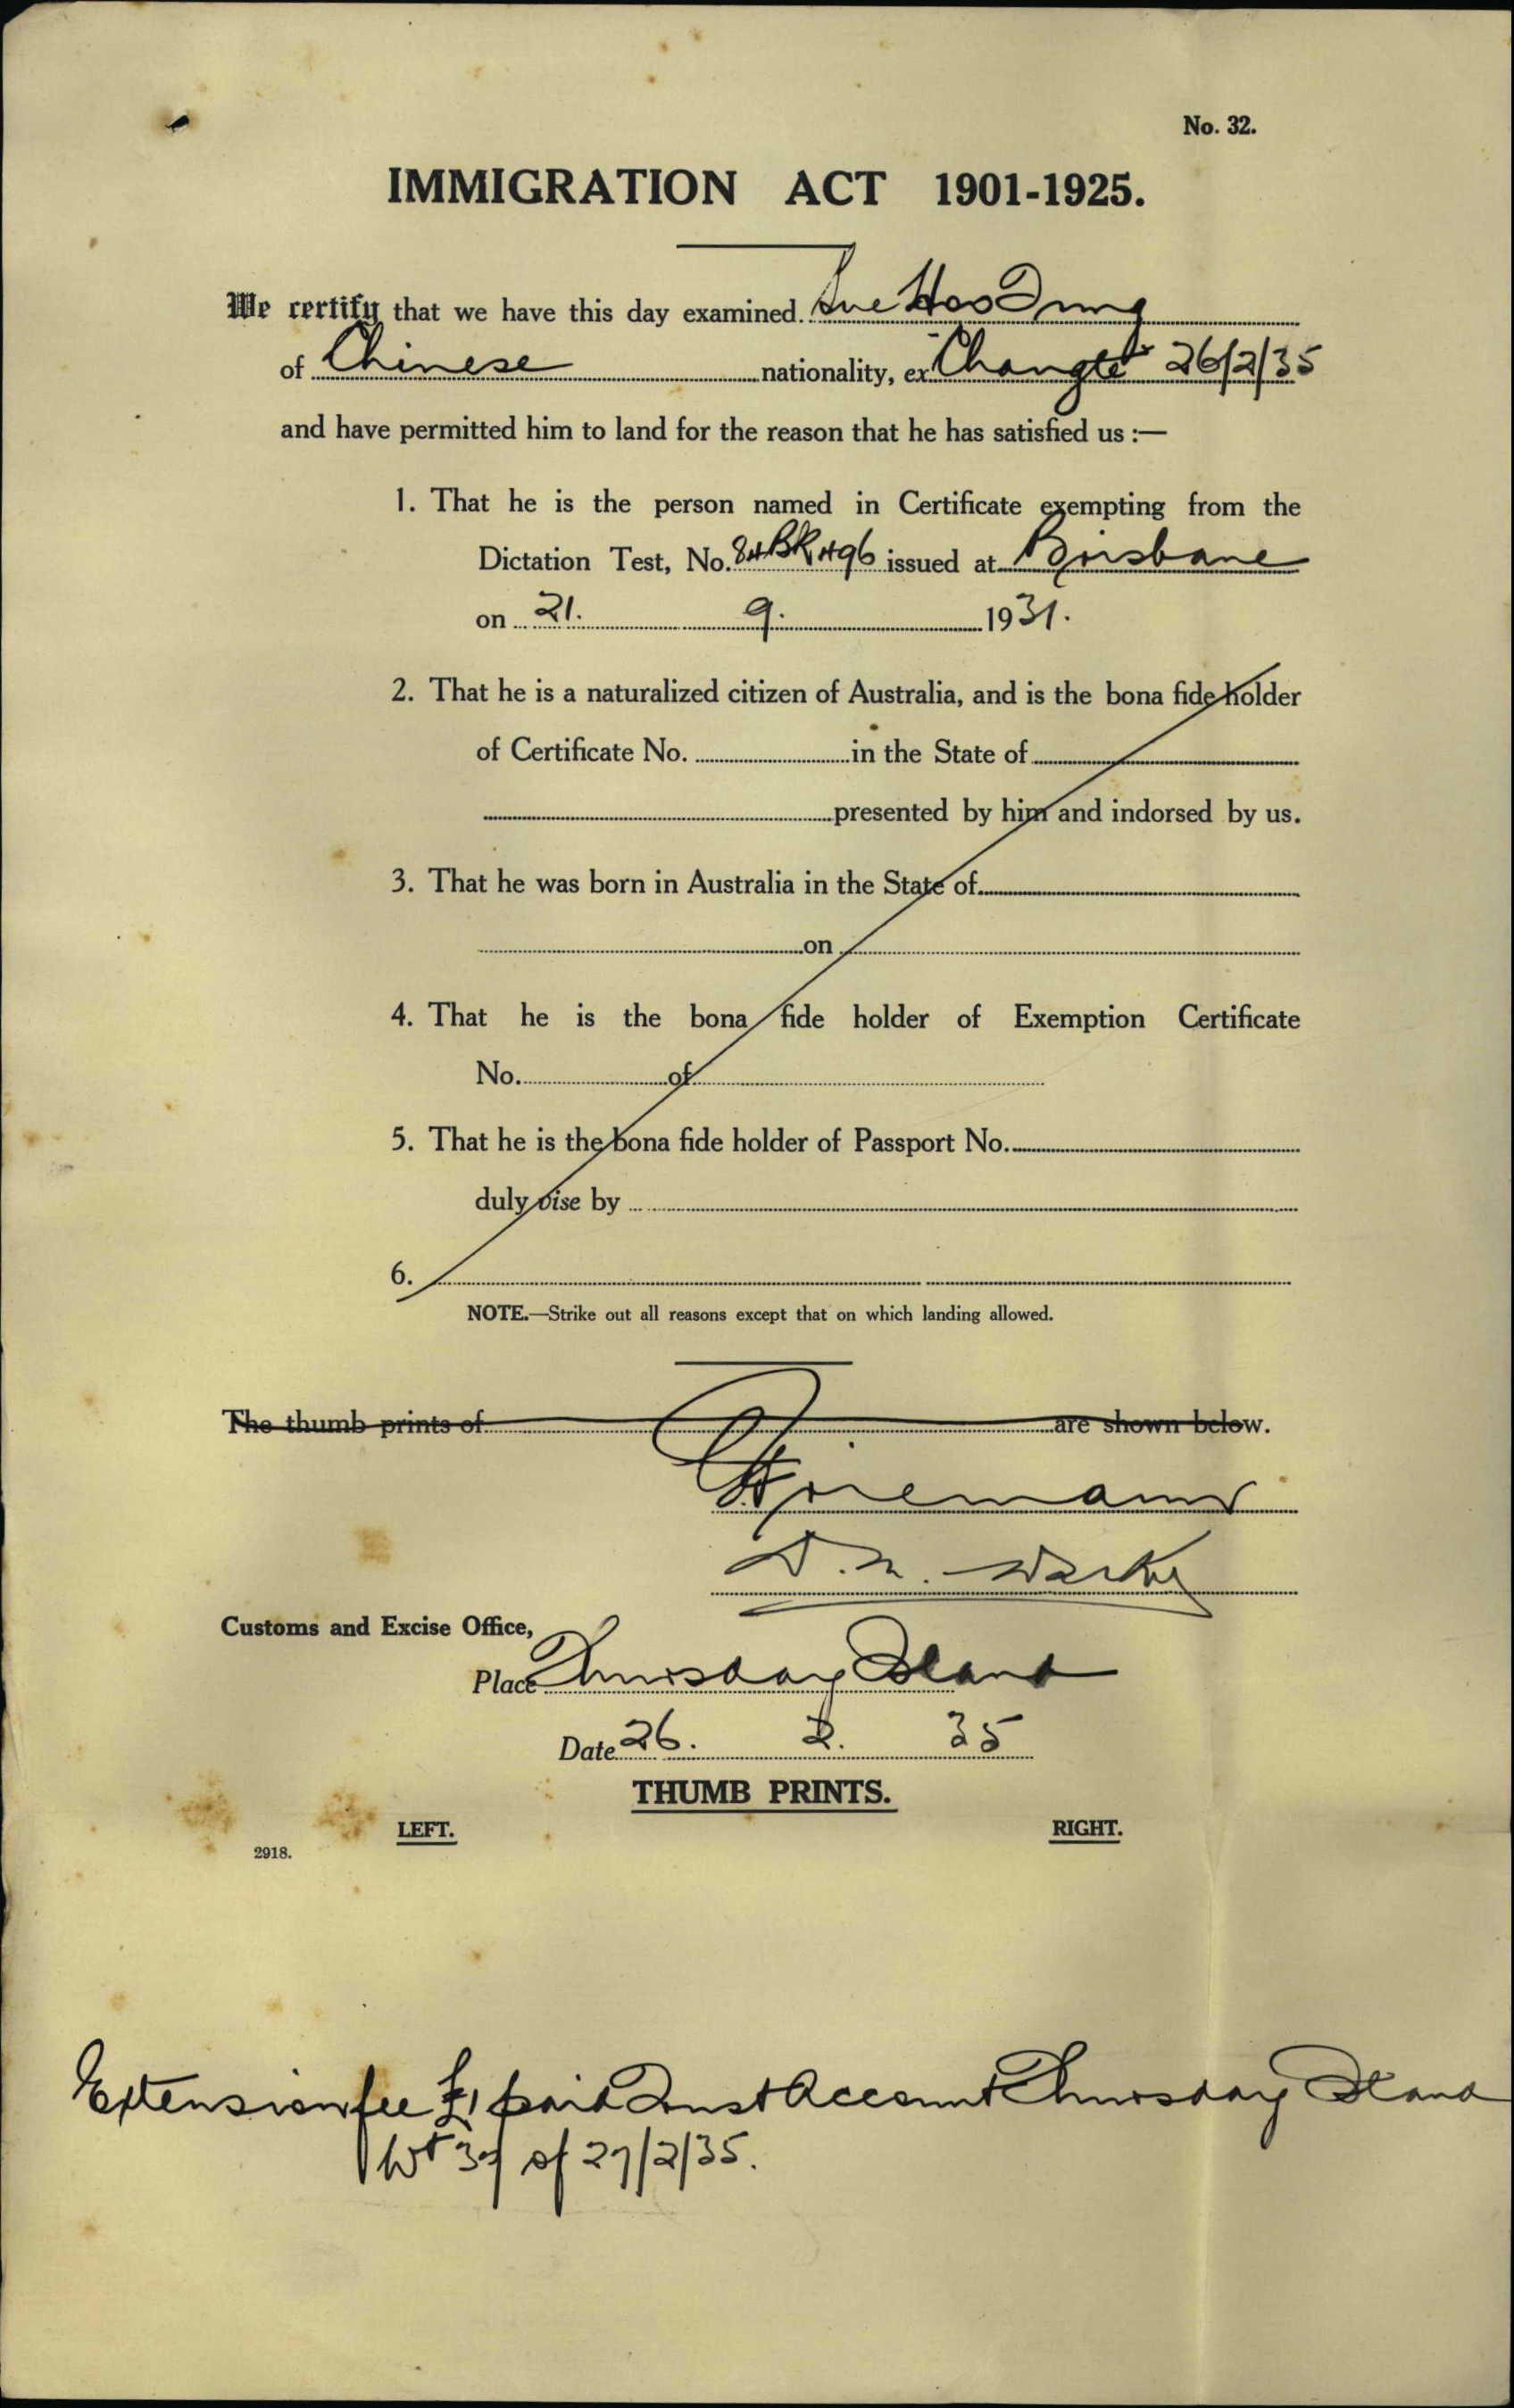 No. 32.
IMMIGRATION ACT 1901-1925.
We certify that we have this day examined Sue Hoo Dung
of Chinese nationality, ex "Changte" 26/2/35
and have permitted him to land for the reason that he has satisfied us :—
1. That he is the person named in Certificate exempting from the
Dictation Test, No. 84BK496 issued at Brisbane
on 21. 9. 1931.
2. That he is a naturalized citizen of Australia, and is the bona fide holder
of Certificate No. in the State of
presented by him and indorsed by us.
3. That he was born in Australia in the State of
on
4. That he is the bona fide holder of Exemption Certificate
No. of
5. That he is the bona fide holder of Passport No.
duly vise by
6.
NOTE.—Strike out all reasons except that on which landing allowed.
The thumb prints of are shown below.
Customs and Excise Office,
Place Thursday Island
Date 26. 2. 35
THUMB PRINTS.
LEFT. RIGHT.
2918.
Extension fee £1 paid Trust Account Thursday Island
of 27/2/35.